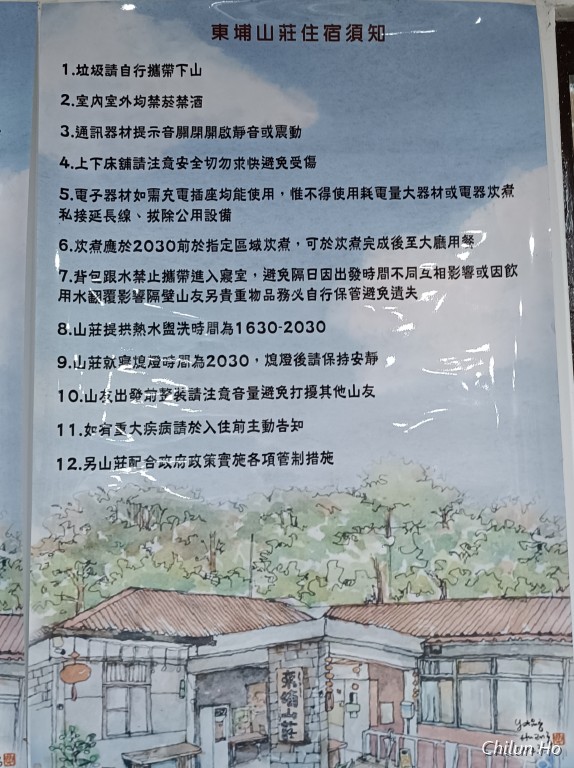 東埔山莊住宿須知
1.垃圾請自行攜帶下山
2.室內室外均禁菸禁酒
3.通訊器材提示音關閉開啟靜音或震動
4.上下床舖請注意安全切勿求快避免受傷
5.電子器材如需充電插座均能使用，惟不得使用耗電量大器材或電器炊煮
私接延長線、拔除公用設備
6.炊煮應於2030前於指定區域炊煮，可於炊煮完成後至大廳用餐
7.背包跟水禁止攜帶進入寢室，避免隔日因出發時間不同互相影響或因飲
用水翻覆影響隔壁山友另貴重物品務必自行保管避免遺失
8.山莊提供熱水盥洗時間為1630-2030
9.山莊就寢熄燈時間為2030，熄燈後請保持安靜
10.山友出發前整裝請注意音量避免打擾其他山友
11.如有重大疾病請於入住前主動告知
12.另山莊配合政府政策實施各項管制措施
東埔山莊
Chilun Ho